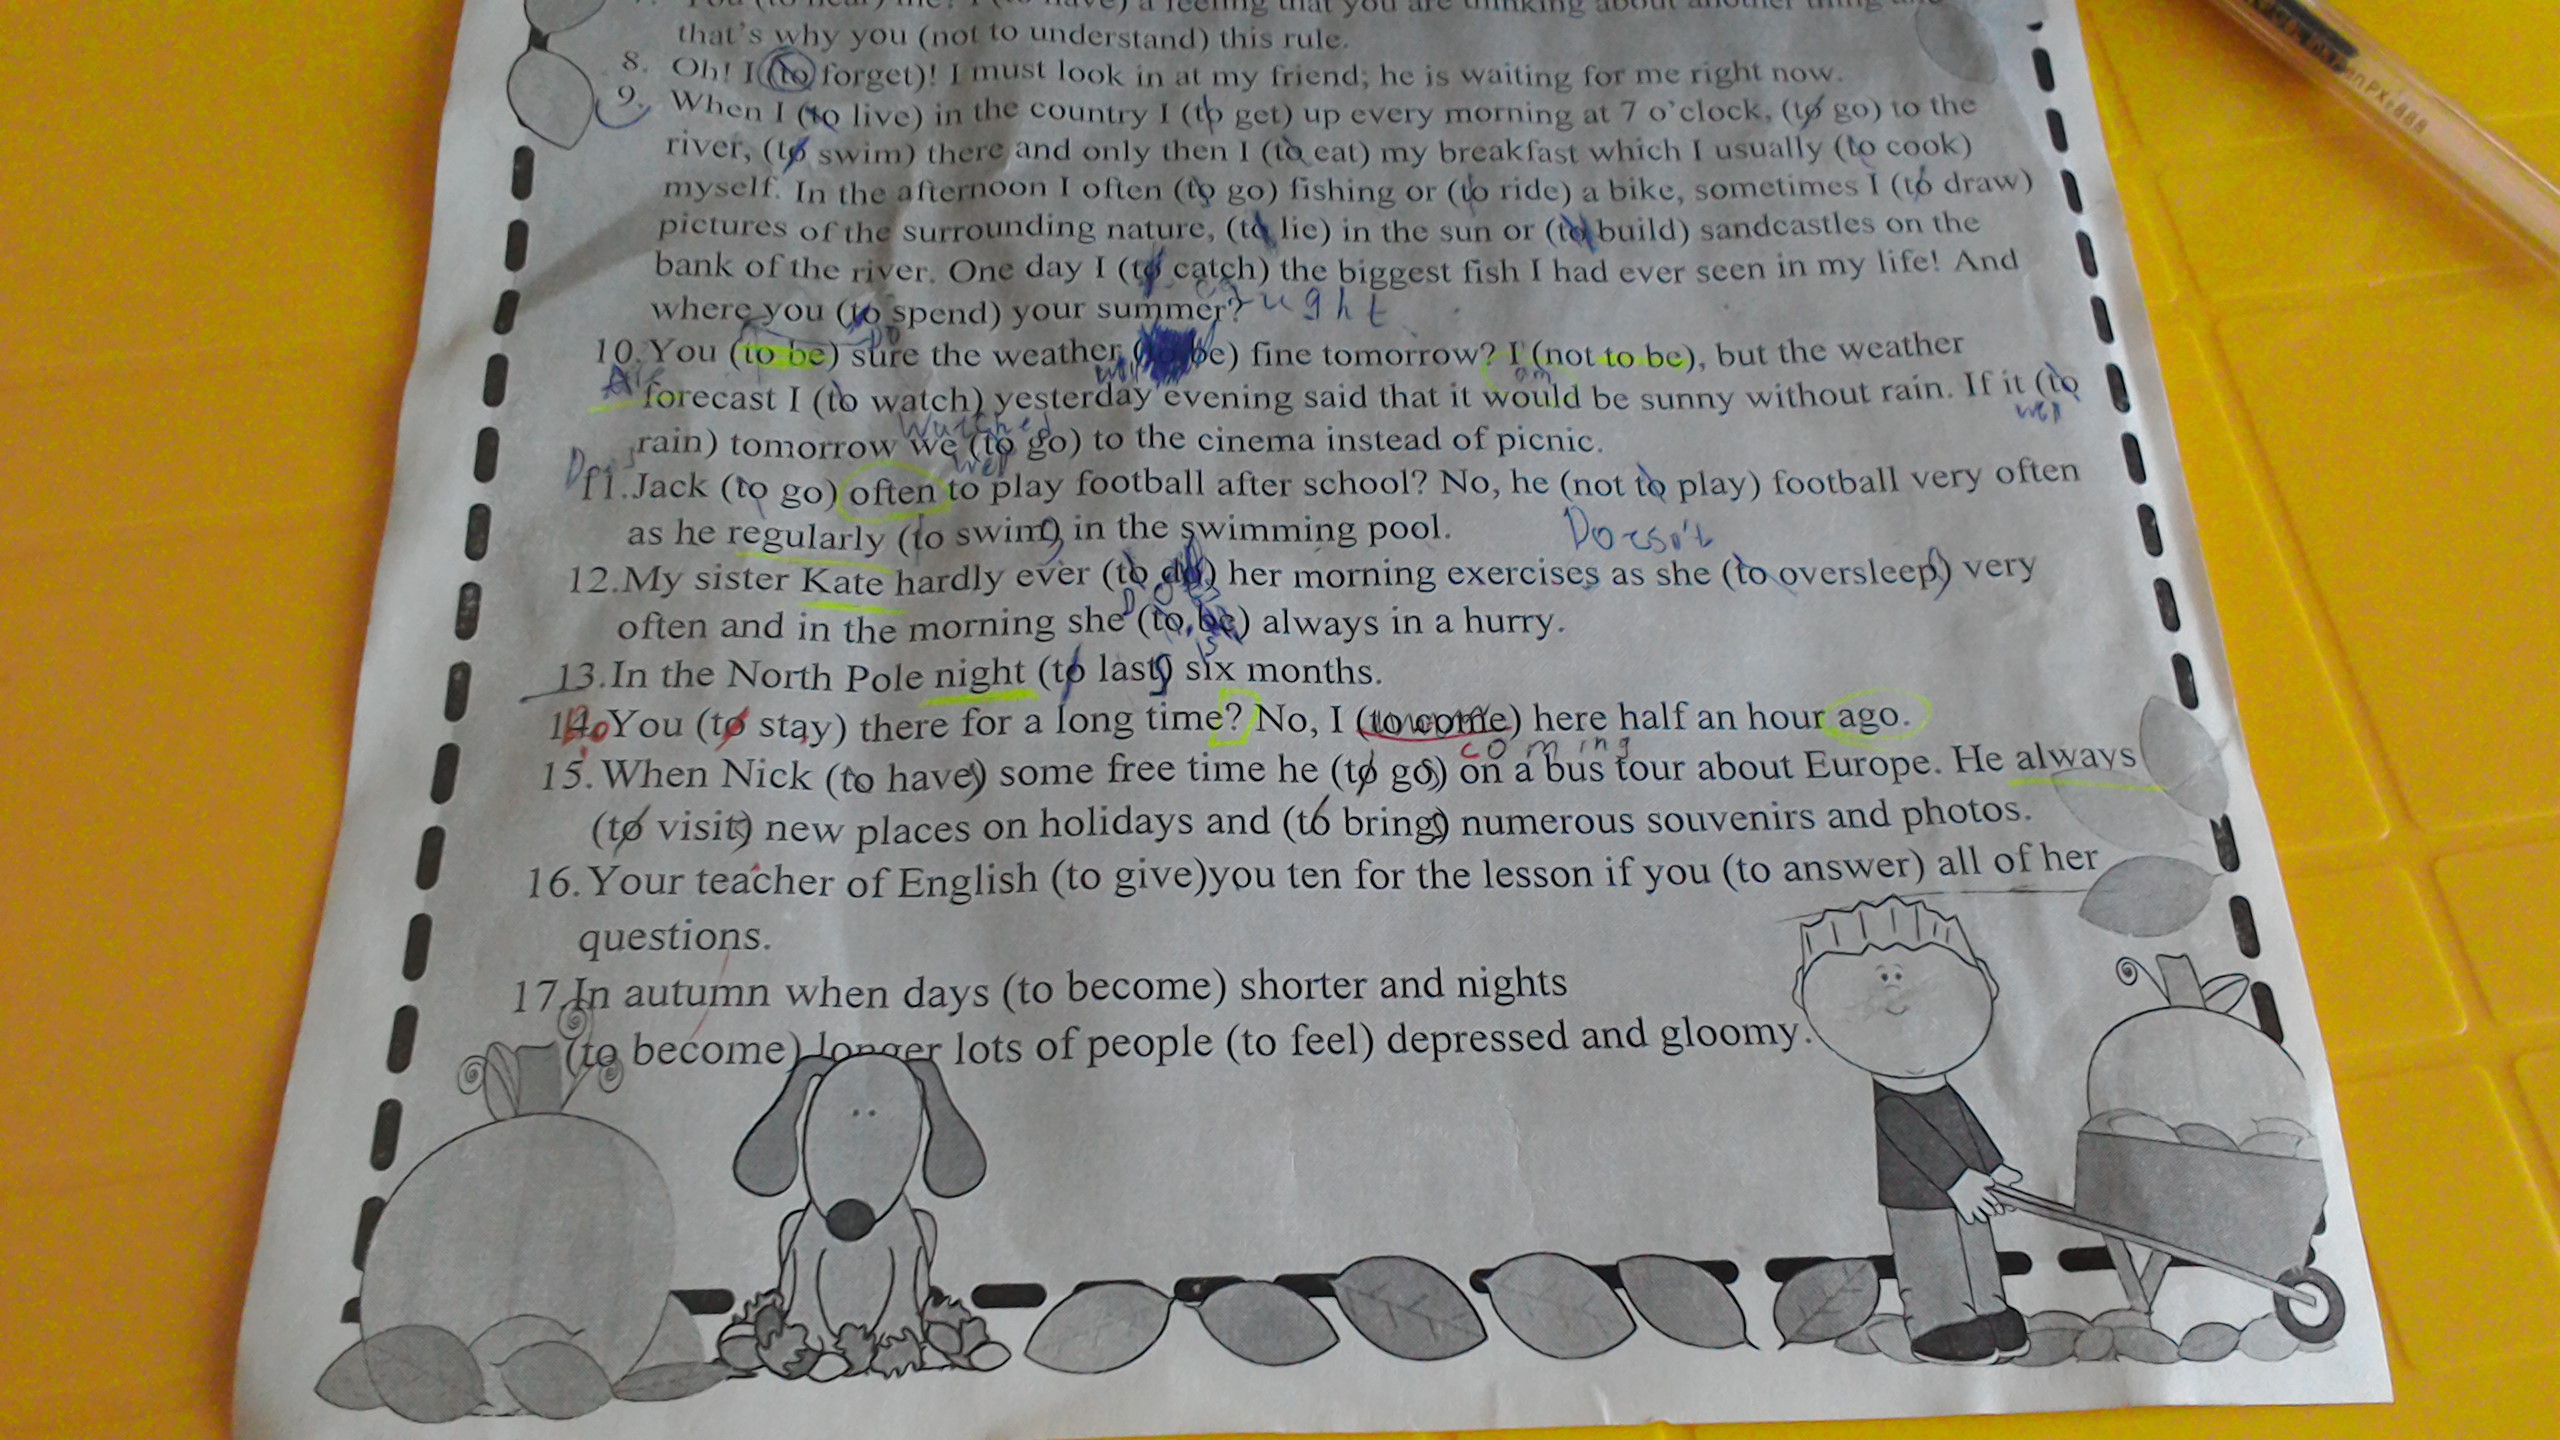 that you are thinking about another thing
that's why you (not to understand) this rule.
8. Oh! I (to forget)! I must look in at my friend; he is waiting for me right now.
9. When I (to live) in the country I (to get) up every morning at 7 o'clock, (to go) to the
river, (to swim) there and only then I (to eat) my breakfast which I usually (to cook)
myself. In the afternoon I often (to go) fishing or (to ride) a bike, sometimes I (to draw)
pictures of the surrounding nature, (to lie) in the sun or (to build) sandcastles on the
bank of the river. One day I (to catch) the biggest fish I had ever seen in my life! And
where you (to spend) your summer? ught
Do
10. You (to be) sure the weather (to be) fine tomorrow? I (not to be), but the weather
will am
forecast I (to watch) yesterday evening said that it would be sunny without rain. If it (to
Watched
rain) tomorrow we (to go) to the cinema instead of picnic.
11. Jack (to go) often to play football after school? No, he (not to play) football very often
as he regularly (to swim) in the swimming pool. Doesn't
12. My sister Kate hardly ever (to do) her morning exercises as she (to oversleep) very
Does
often and in the morning she (to be) always in a hurry.
is
13. In the North Pole night (to last) six months.
14. You (to stay) there for a long time? No, I (to come) here half an hour ago.
coming
15. When Nick (to have) some free time he (to go) on a bus tour about Europe. He always
(to visit) new places on holidays and (to bring) numerous souvenirs and photos.
16. Your teacher of English (to give)you ten for the lesson if you (to answer) all of her
questions.
17. In autumn when days (to become) shorter and nights
(to become) longer lots of people (to feel) depressed and gloomy.